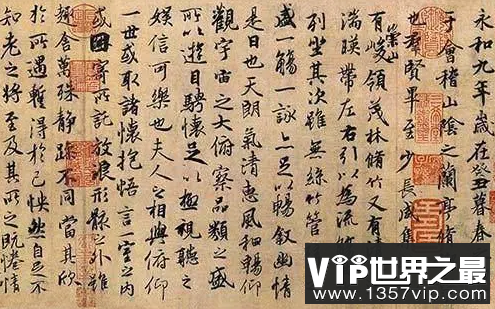 永和九年歲在癸丑暮春
于會稽山陰之蘭亭脩
也羣賢畢至少長咸集
有崇山峻領茂林脩竹又有清
湍暎帶左右引以為流
列坐其次雖無絲竹管
盛一觴一詠亦足以暢敘幽情
是日也天朗氣清惠風和暢仰
觀宇宙之大俯察品類之盛
所以遊目騁懷足以極視聽之
娛信可樂也夫人之相與俯仰
一世或取諸懷抱悟言一室之內
或因寄所託放浪形骸之外雖
趣舍萬殊靜躁不同當其欣
於所遇暫得於己怏然自足不
知老之將至及其所之既惓情
VIP世界之最
www.1357vip.com